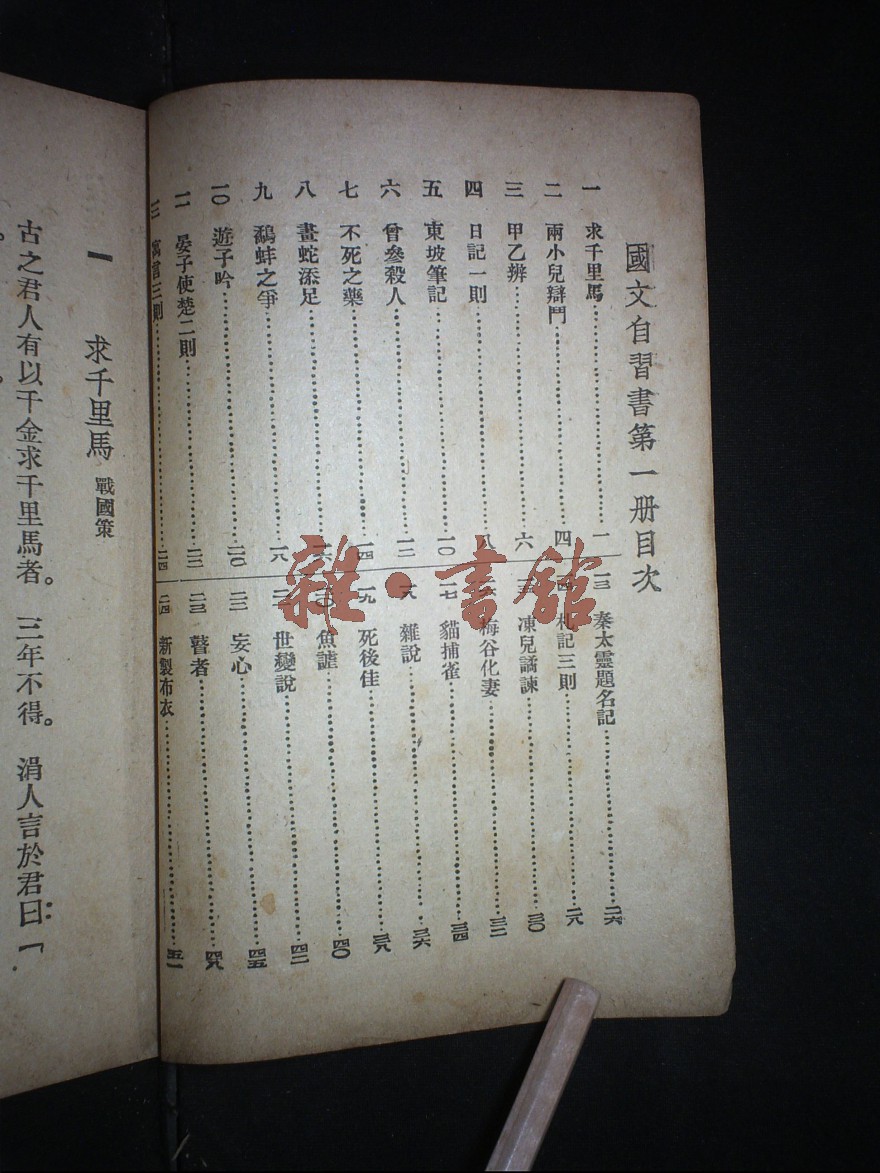 國文自習書第一册目次
一 求千里馬 一
二 兩小兒辯鬥 四
三 甲乙辨 六
四 日記一則 八
五 東坡筆記 一〇
六 曾參殺人 一二
七 不死之藥 一四
八 畫蛇添足 一六
九 鷸蚌之爭 一八
一〇 遊子吟 二〇
一一 晏子使楚二則 二二
一二 寓言三則 二四
一三 秦太靈題名記 二六
札記三則 二八
凍兒譎諫 三〇
梅谷化妻 三二
一七 貓捕雀 三四
一八 雜說 三六
一九 死後佳 三八
二〇 魚謔 四〇
二一 世變說 四二
二二 妄心 四五
二三 瞽者 四八
二四 新製布衣 五一
雜·書館
一 求千里馬 戰國策
古之君人有以千金求千里馬者。三年不得。涓人言於君曰：「